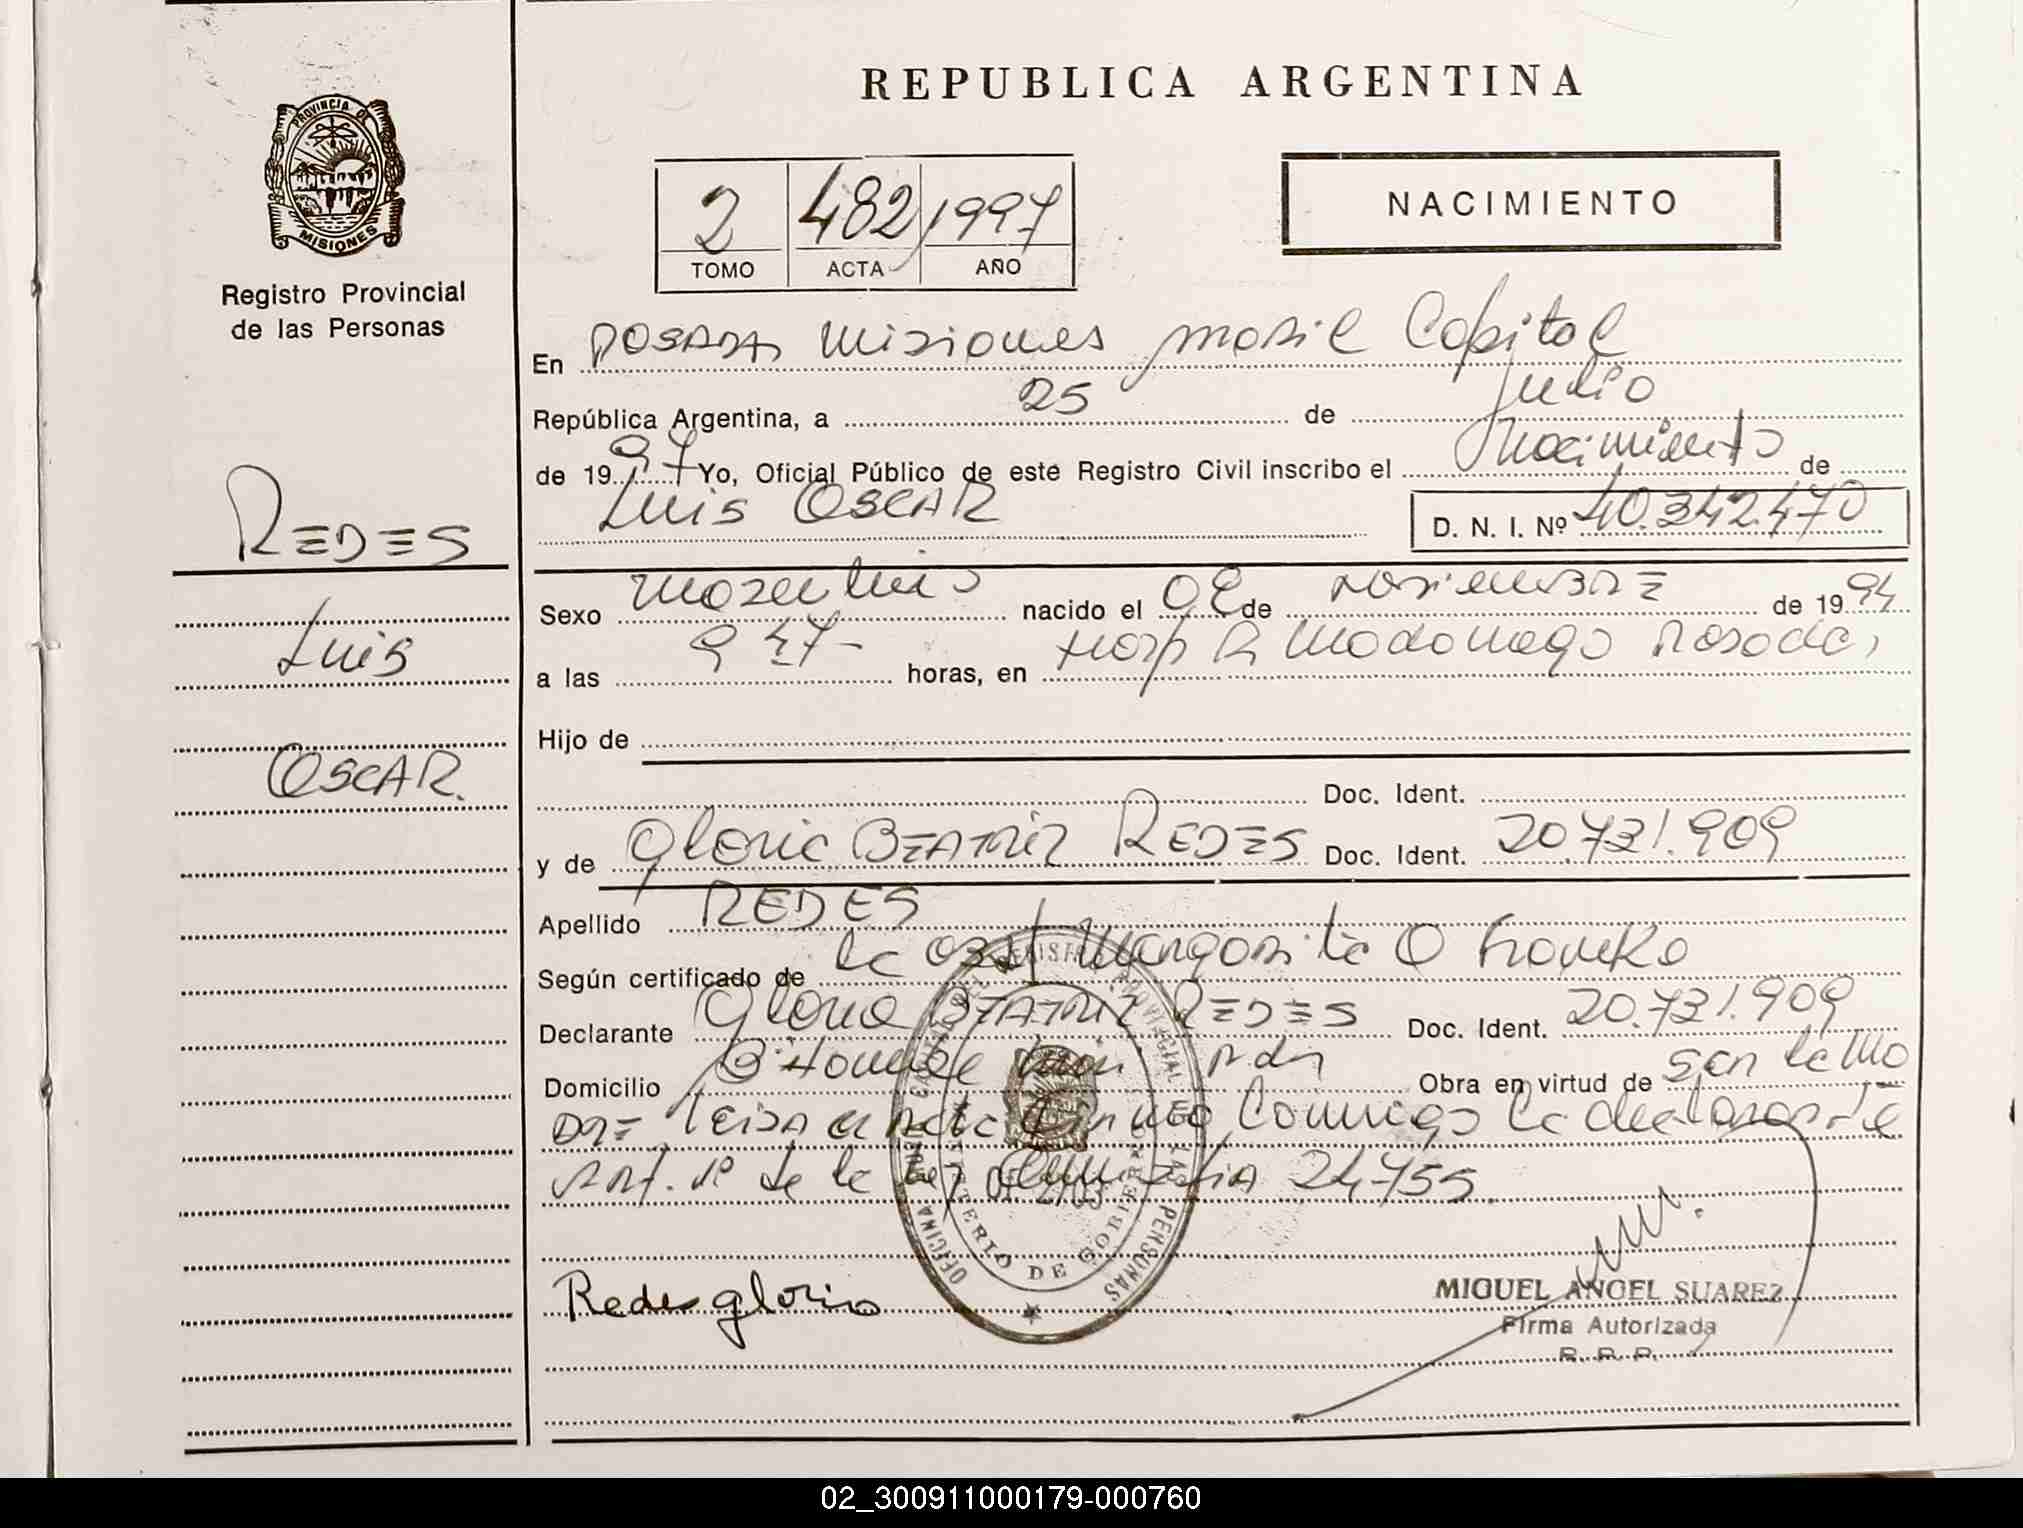 REPUBLICA ARGENTINA
PROVINCIA DE
MISIONES
Registro Provincial
de las Personas
2 482 1997
TOMO ACTA AÑO
NACIMIENTO
En POSADAS Misiones Capital
República Argentina, a 25 de Julio
de 1997 Yo, Oficial Público de este Registro Civil inscribo el Nacimiento de
Luis OSCAR D. N. I. Nº 40.342.470
REDES
Luis
OSCAR.
Sexo Masculino nacido el de NOViEMBRE de 1994
a las 9 47- horas, en Hosp R Madariaga Posadas
Hijo de
Doc. Ident.
y de Gloria BEATRIZ REDES Doc. Ident. 20.731.909
Apellido REDES
Según certificado de la obst Margarita O
Declarante Gloria BEATRIZ REDES Doc. Ident. 20.731.909
Domicilio Obra en virtud de ser la Ma
DRE Leida el Acta conmigo la declarante
Art. 1º de la Ley 24755.
OFICINA REGISTRO PROVINCIAL DE LAS PERSONAS
MINISTERIO DE GOBIERNO
Redes gloria
MIGUEL ANGEL SUAREZ
Firma Autorizada
R. P. P.
02_300911000179-000760